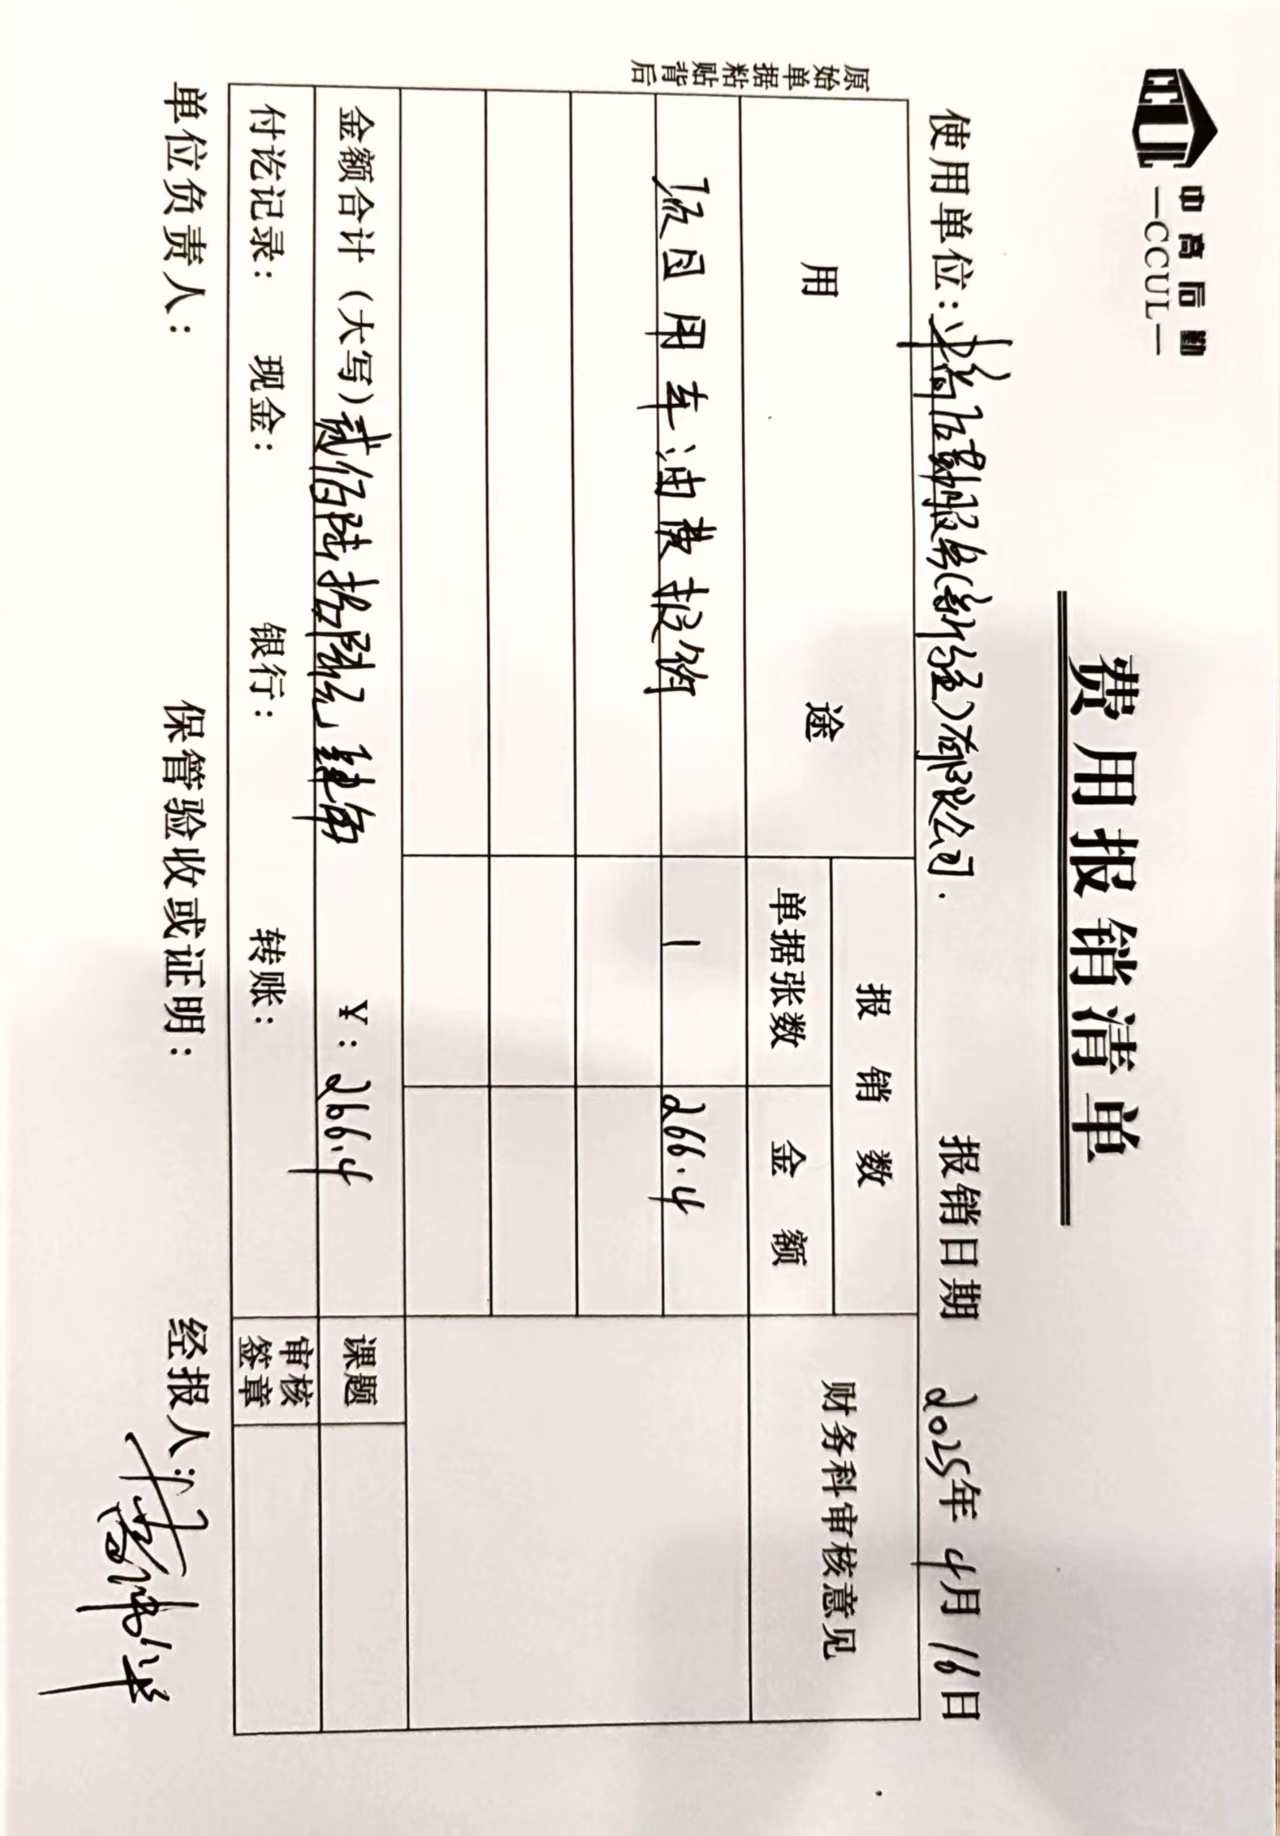 中高后勤
—CCUL—
费用报销清单
使用单位: 后勤服务(新疆)有限公司.
报销日期 2025年 4月 16日
原始单据粘贴背后
用 途
报 销 数
财务科审核意见
单据张数
金 额
项目用车油费报销
1
266.4
金额合计（大写）贰佰陆拾陆元肆角
￥: 266.4
课题
付讫记录: 现金: 银行: 转账:
审核签章
单位负责人:
保管验收或证明:
经报人: